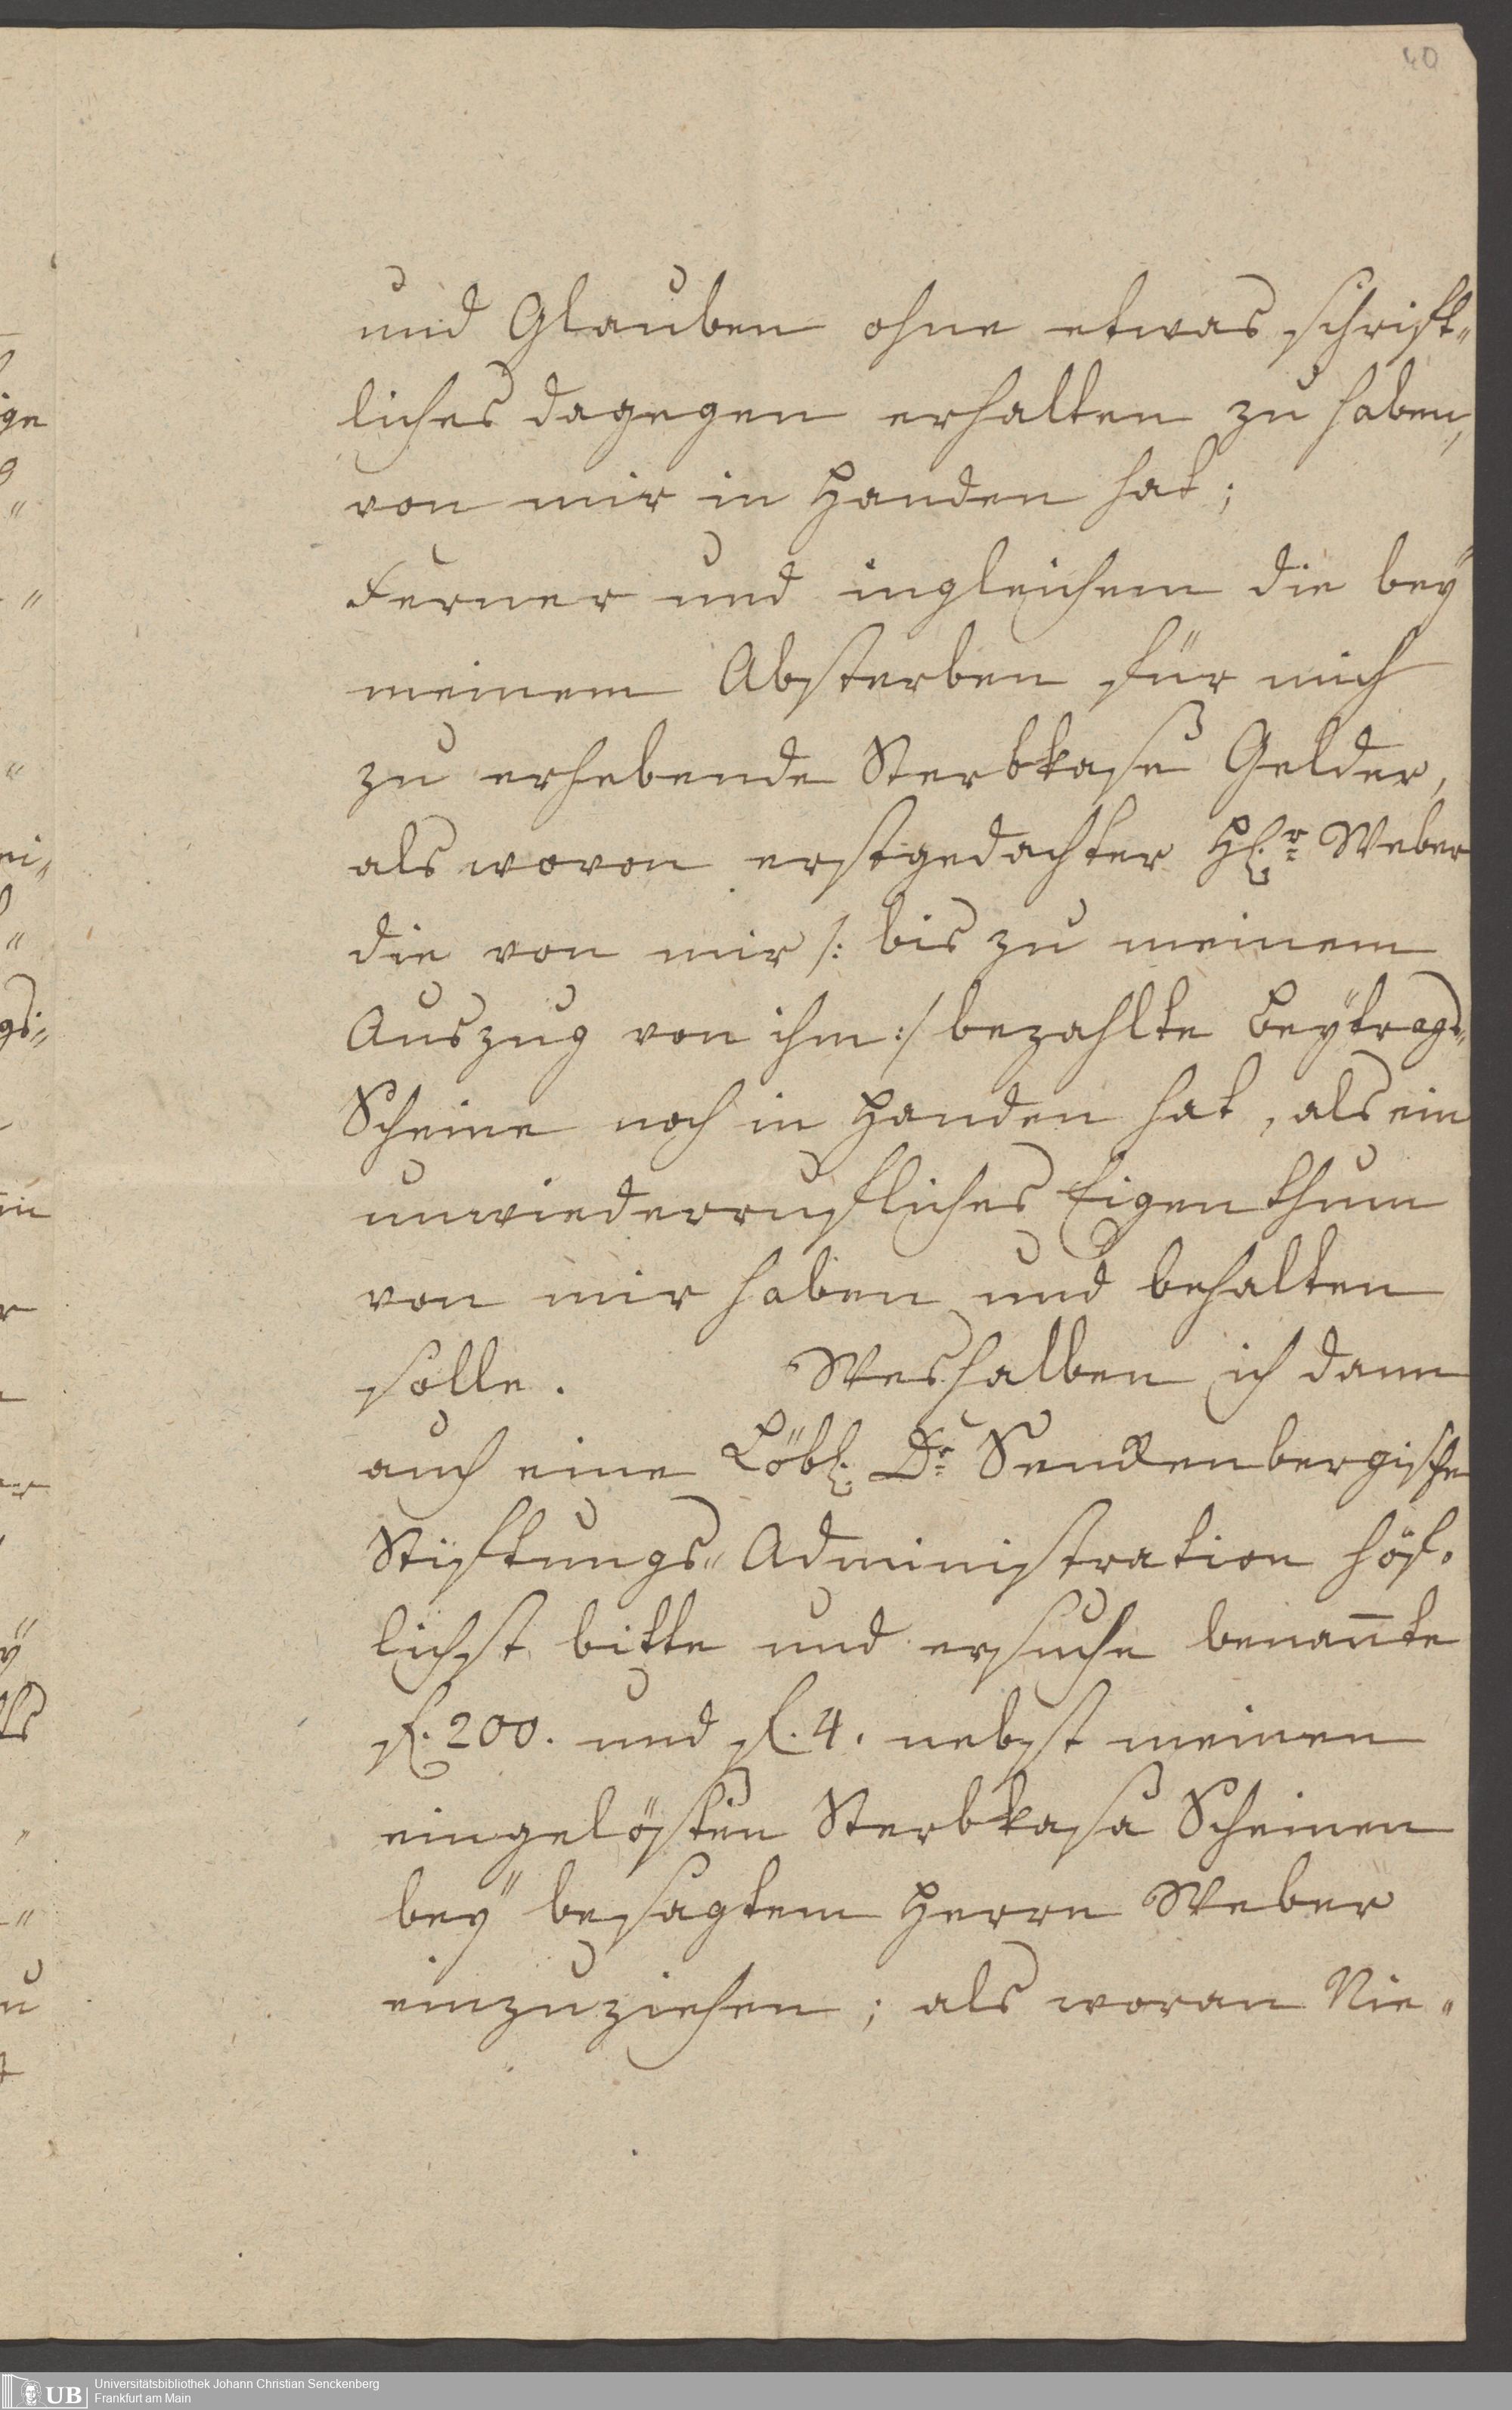 40
und Glauben ohne etwas schrift„
liches dagegen erhalten zu haben,
von mir in Handen hat;
Ferner und ingleichem die beÿ
meinem Absterben für mich
zu erhebende Sterbkasse Gelder,
als wovon erstgedachter H. Weber
die von mir /: bis zu meinem
Auszug von ihm :/ bezahlte Beÿtrags„
Scheine noch in Handen hat, als ein
unwiederrufliches Eigenthum
von mir haben und behalten
solle. Weshalben ich dann
auch eine Löbl. Dr Senckenbergische
Stiftungs„Administration höf„
lichst bitte und ersuche benan̄te
f. 200. und f. 4. nebst meinen
eingelösten Sterbkasse Scheinen
beÿ besagtem Herrn Weber
einzuziehen; als woran Nie„
UB
Universitätsbibliothek Johann Christian Senckenberg
Frankfurt am Main